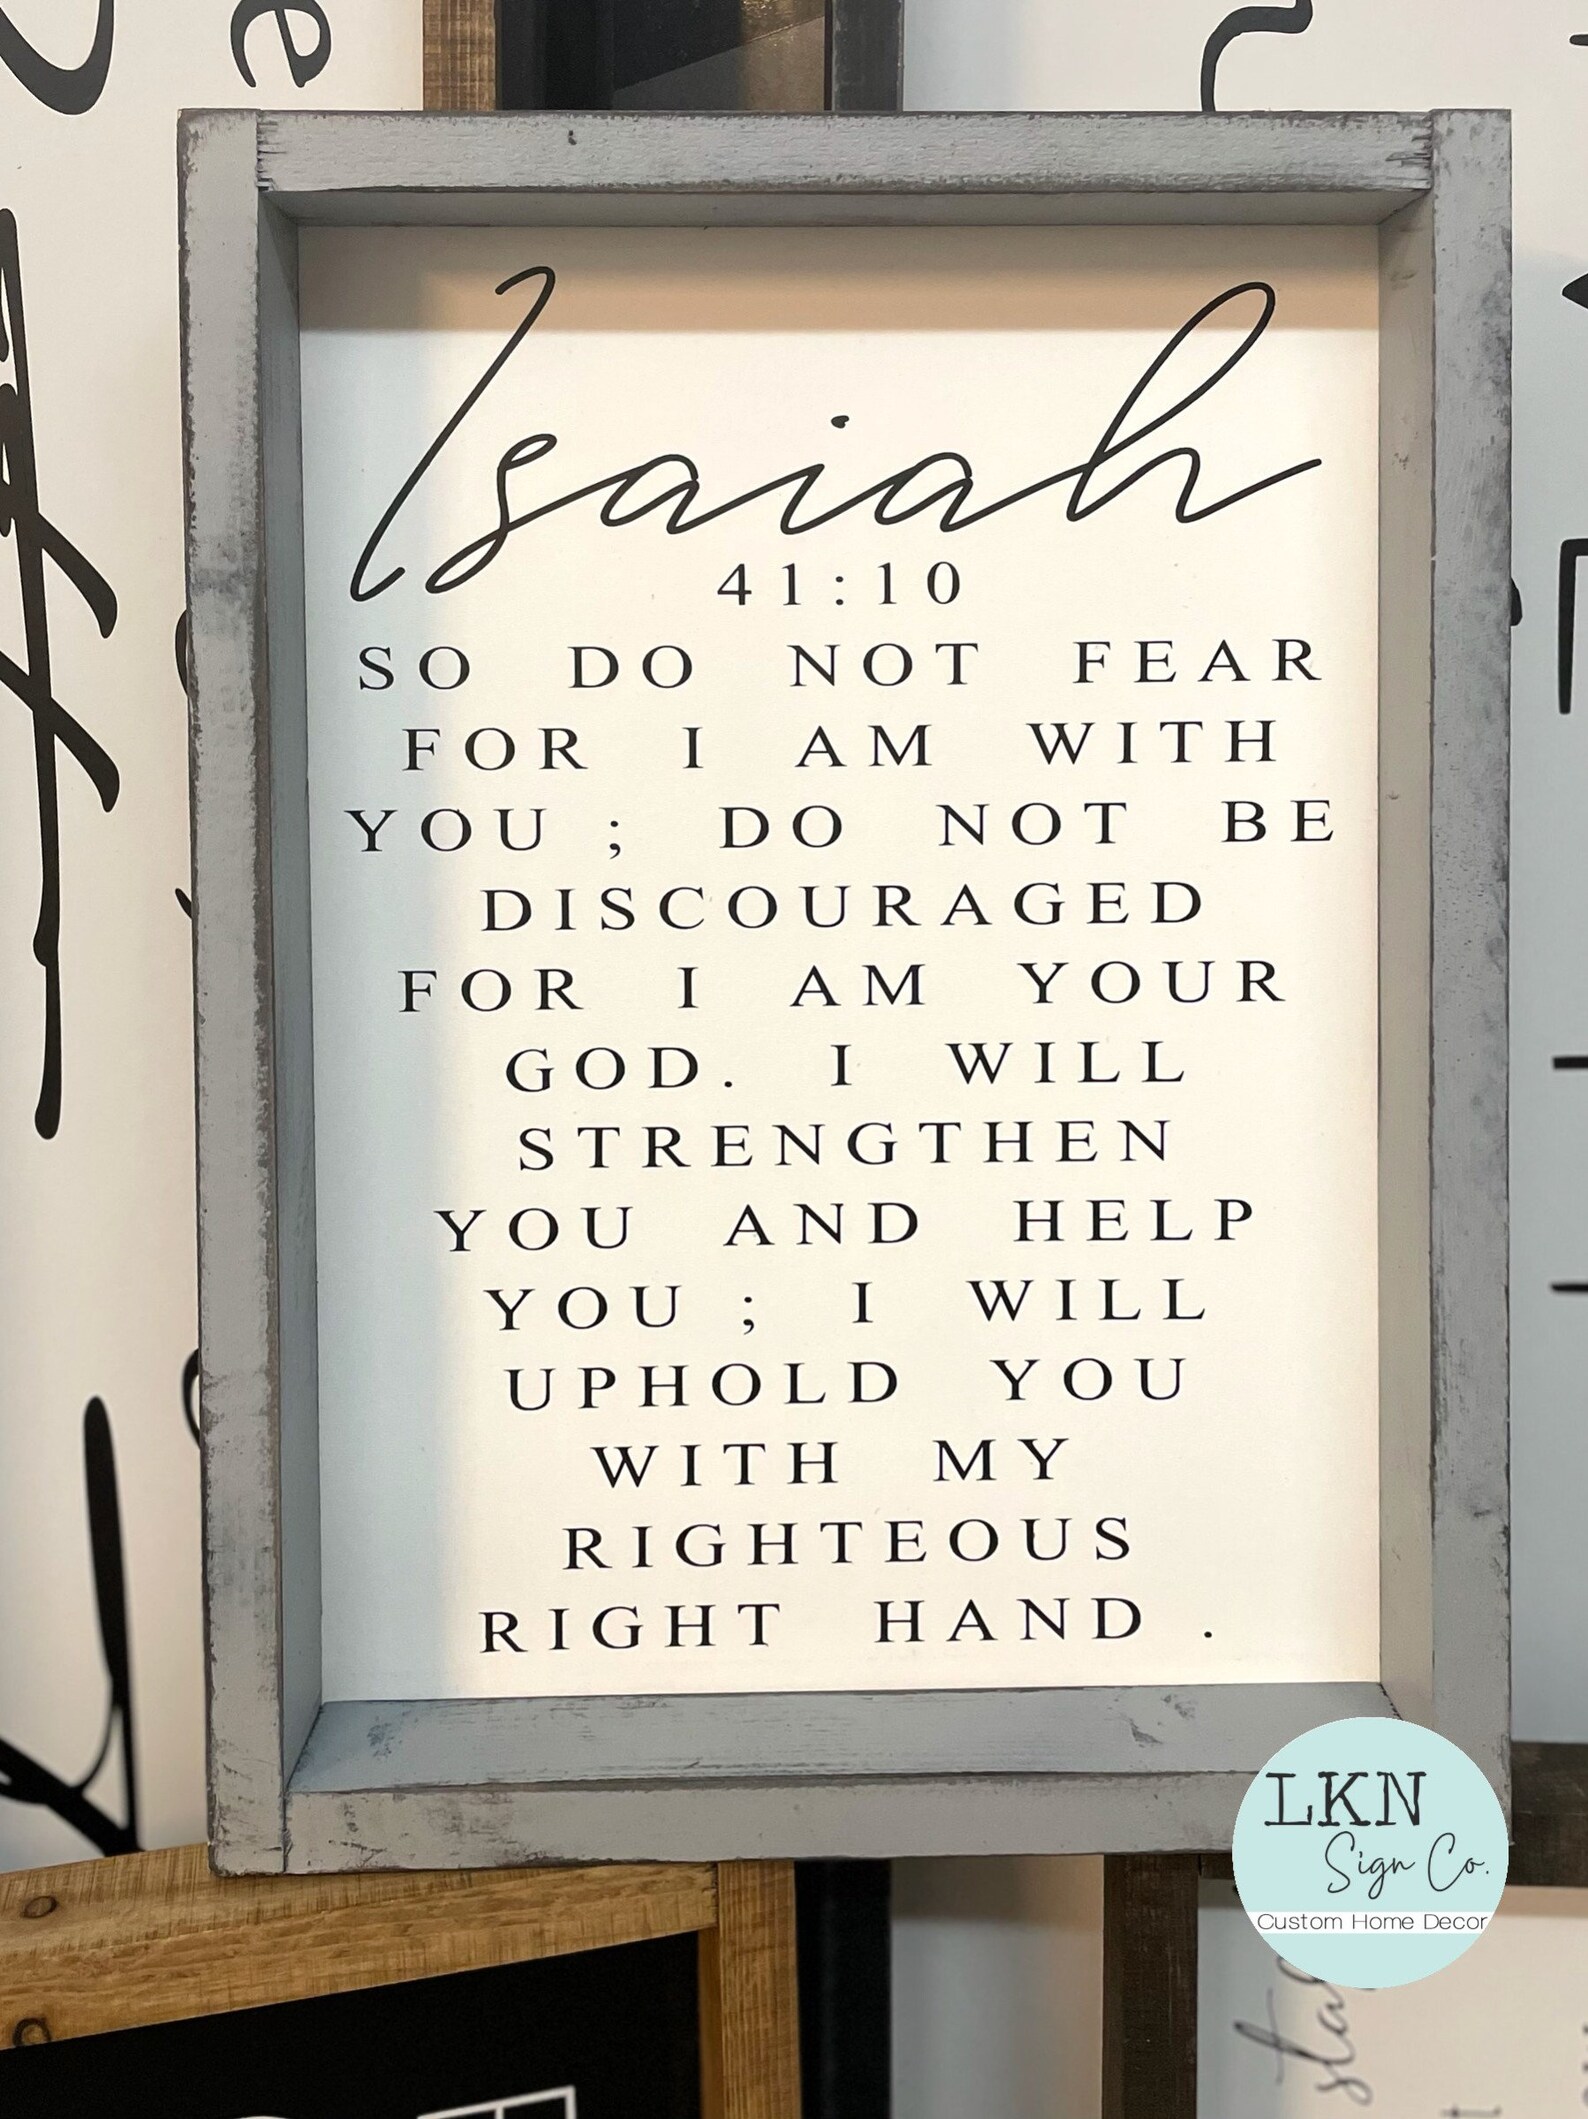 e
Isaiah
41:10
SO DO NOT FEAR
FOR I AM WITH
YOU ; DO NOT BE
DISCOURAGED
FOR I AM YOUR
GOD. I WILL
STRENGTHEN
YOU AND HELP
YOU ; I WILL
UPHOLD YOU
WITH MY
RIGHTEOUS
RIGHT HAND .
LKN
Sign Co.
Custom Home Decor